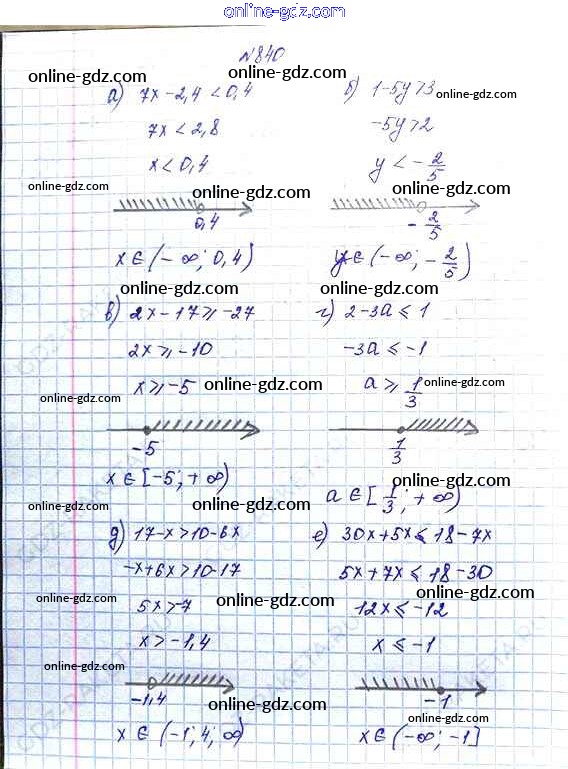 online-gdz.com
№840
online-gdz.com online-gdz.com
а) 7x-2,4<0,4 б) 1-5y>3 online-gdz.com
7x<2,8 -5y>2
x<0,4 y<-2/5
online-gdz.com online-gdz.com online-gdz.com
0,4 -2/5
online-gdz.com online-gdz.com
x∈(-∞; 0,4) y∈(-∞; -2/5)
online-gdz.com online-gdz.com
в) 2x-17≥-27 г) 2-3a≤1
2x≥-10 -3a≤-1
x≥-5 online-gdz.com a≥1/3 online-gdz.com
online-gdz.com
-5 1/3
online-gdz.com
x∈[-5; +∞) online-gdz.com
a∈[1/3; +∞)
online-gdz.com online-gdz.com
д) 17-x>10-6x е) 30x+5x≤18-7x
-x+6x>10-17 5x+7x≤18-30
online-gdz.com online-gdz.com
5x>-7 12x≤-12
x>-1,4 online-gdz.com x≤-1
online-gdz.com online-gdz.com
-1,4 -1
online-gdz.com online-gdz.com
x∈(-1; 4; ∞) x∈(-∞; -1]
online-gdz.com